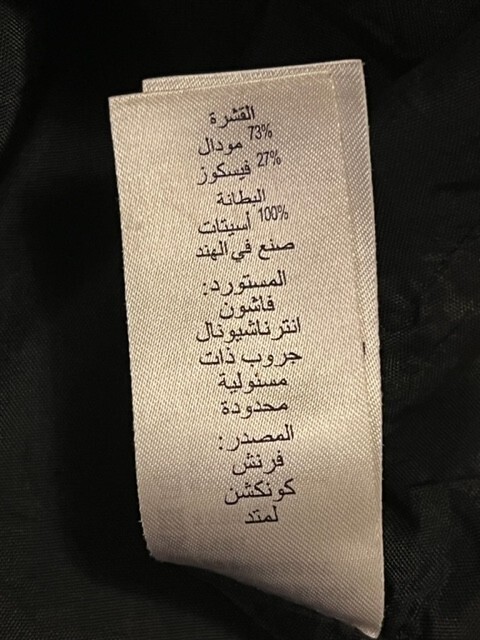 القشرة
73% مودال
27% فيسكوز
البطانة
100% أسيتات
صنع في الهند
المستورد:
فاشون
انترناشيونال
جروب ذات
مسئولية
محدودة
المصدر:
فرنش
كونكشن
لمتد